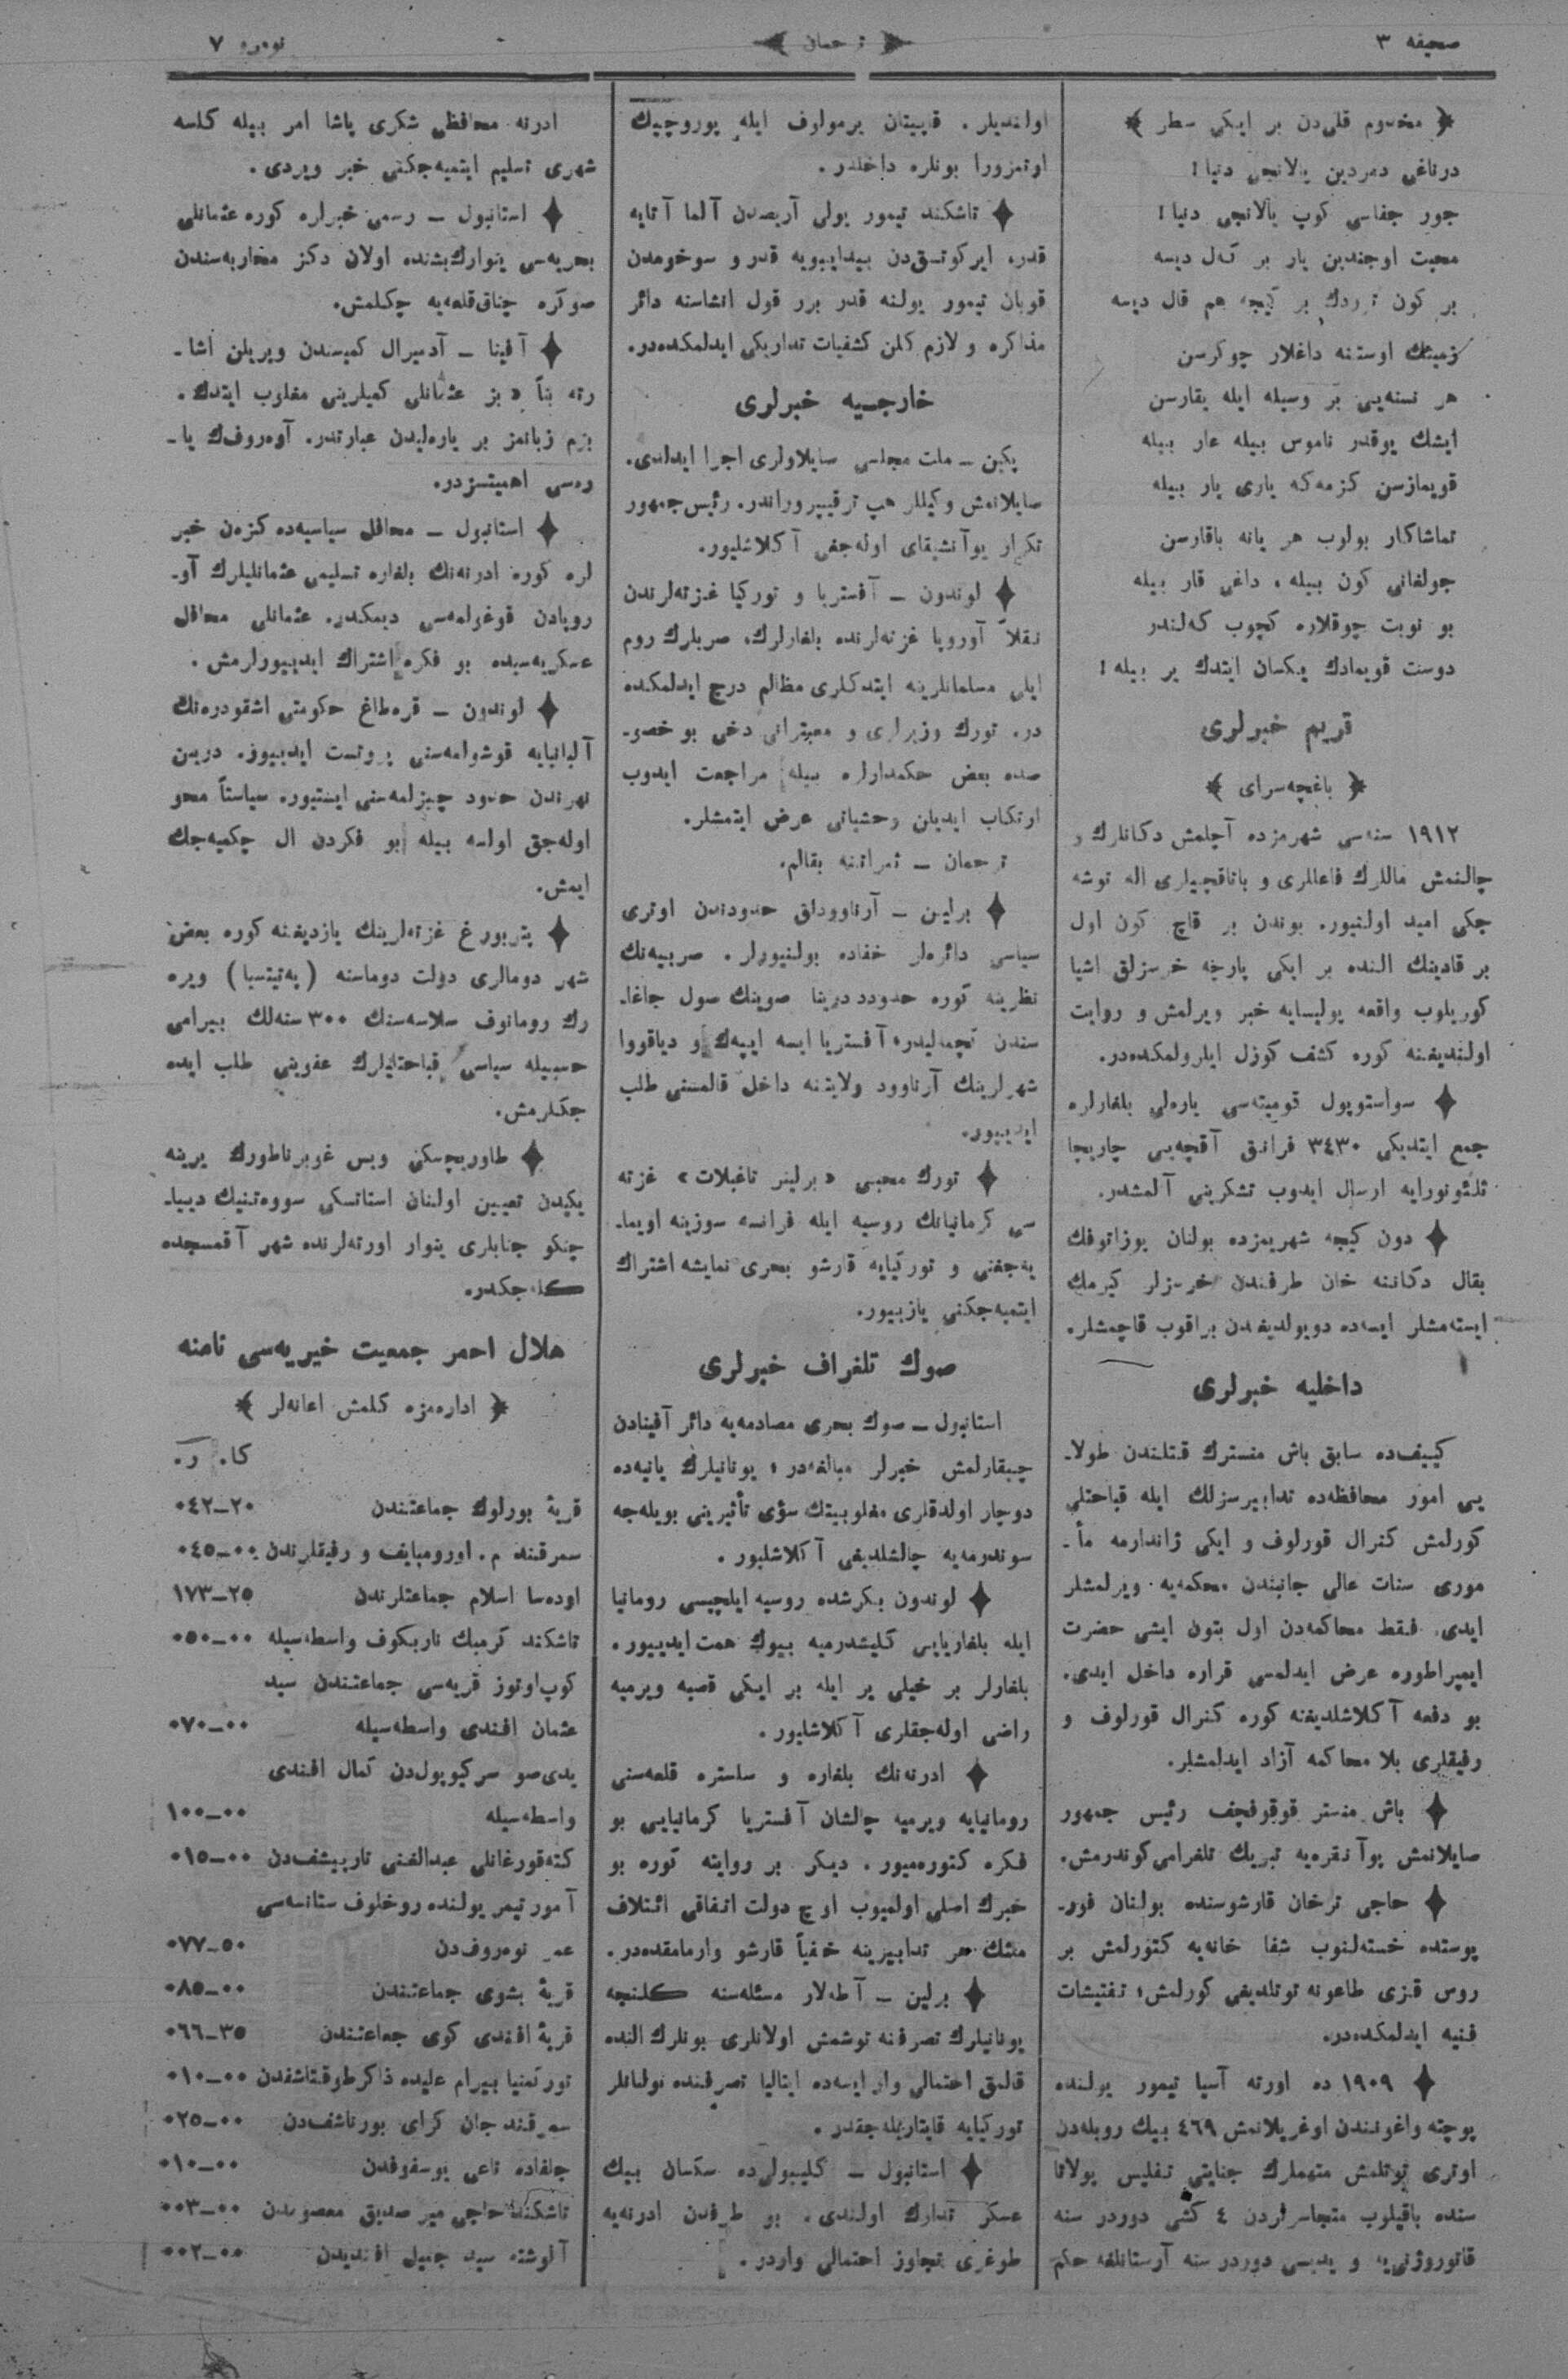 صحیفه ۳
ترجمان
نومرو ۷
﴿ مخدوم قلی‌دن بر ایکی سطر ﴾
درتاغی دمردین یالانجی دنیا!
جور جفاسی کوپ یالانجی دنیا!
محبت اوجندین یار بر کل دیسه
بر کون تر ردك بر کیجه هم قال دیسه
زمینك اوستنه داغلار چوکرسن
هر نسنه‌یی بر وسیله ایله یقارسن
ایشك یوقدر ناموس بیله عار بیله
قویمازسن کزمه‌که یاری یار بیله
تماشاکار بولوب هر یانه باقارسن
جولفانی کون بیله، داغی قار بیله
بو نوبت چوقلاره کچوب که‌لندر
دوست قویمادك یکسان ایتدك یر بیله!
قریم خبرلری
﴿ باغچه‌سرای ﴾
۱۹۱۲ سنه‌سی شهرمزده آچلمش دکانلرك و
چالنمش ماللرك فاعللری و باتاقچیلری اله توشه
جکی امید اولنیور. بوندن بر قاچ کون اول
بر قادینك النده بر ایکی پارچه خرسزلق اشیا
کوریلوب واقعه پولیسایه خبر ویرلمش و روایت
اولندیغنه کوره کشف کوزل ایلرولمکده‌در.
سواستوپول قومیته‌سی یاره‌لی بلغارلره
جمع ایتدیکی ۳٤۳۰ فرانق آقچه‌یی چاریجا
ئله‌ئونورایه ارسال ایدوب تشکرینی آلمشدر.
دون کیجه شهریمزده بولنان بوزاتوفك
بقال دکاننه خان طرفندن خرسزلر کیرمك
ایسته‌مشلر ایسه‌ده دویولدیغندن براقوب قاچمشلر.
داخلیه خبرلری
کییف‌ده سابق باش منسترك قتلندن طولا۔
یی امور محافظه‌ده تدابیرسزلك ایله قباحتلی
کورلمش کنرال قورلوف و ایکی ژاندارمه مأ۔
موری سنات عالی جانبندن محکمه‌یه ویرلمشلر
ایدی. فقط محاکمه‌دن اول بتون ایشی حضرت
ایمپراطوره عرض ایدلمسی قراره داخل ایدی.
بو دفعه آکلاشلدیغنه کوره کنرال قورلوف و
رفیقلری بلا محاکمه آزاد ایدلمشلر.
باش منستر قوقوفچف رئیس جمهور
صایلانمش پوآنقره‌یه تبریك تلغرامی کوندرمش.
حاجی ترخان قارشوسنده بولنان فور۔
پوستده خسته‌لنوب شفا خانه‌یه کتورلمش بر
روس قزی طاعونه توتلدیغی کورلمش؛ تفتیشات
فنیه ایدلمکده‌در.
۱۹۰۹ ده اورته آسیا تیمور یولنده
پوچته واغونندن اوغریلانمش ٤٦٩ بیك روبله‌دن
اوتری توتلمش متهملرك جنایتی تفلیس پولاتا
سنده باقیلوب متجاسرلردن ٤ کشی دوردر سنه
قاتوروژنی‌یه و یدیسی دوردر سنه آرستانلغه حکم
اولندیلر. قاپیتان یرمولوف ایله یوروچیك
اوتمزورا بونلره داخلدر.
تاشکند تیمور یولی آریصدن آلما آتایه
قدر، ایرکوتسق‌دن بیدایبویه قدر و سوخومدن
قوبان تیمور یولنه قدر برر قول انشاسنه دائر
مذاکره و لازم کلن کشفیات تدارکی ایدلمکده‌در.
خارجیه خبرلری
پکین ـ ملت مجلسی صایلاولری اجرا ایدلدی.
صایلانمش وکیللر هپ ترقیپروراندر. رئیس‌جمهور
تکرار یوآنشیقای اوله‌جغی آکلاشلیور.
لوندون ـ آفستریا و تورکیا غزته‌لرندن
نقلاً آوروپا غزته‌لرنده بلغارلرك، صربلرك روم
ایلی مسلمانلرینه ایتدکلری مظالم درج ایدلمکده
در. تورك وزیرلری و معتبرانی دخی بو خصو۔
صده بعض حکمدارلره بیله مراجعت ایدوب
ارتکاب ایدیلن وحشیاتی عرض ایتمشلر.
ترجمان ـ ثمراتنه بقالم.
برلین ـ آرناوودلق حدودندن اوتری
سیاسی دائره‌لر خفاده بولنیورلر. صربیه‌نك
نظرینه کوره حدود درینا صوینك صول جاغا۔
سندن کچمه‌لیدر، آفستریا ایسه ایپه‌ك و دیاقووا
شهرلرینك آرناوود ولایتنه داخل قالمسنی طلب
ایدییور.
تورك محبی «برلینر تاغبلات» غزته
سی کرمانیانك روسیه ایله فرانسه سوزینه اویما۔
یه‌جغنی و تورکیایه قارشو بحری نمایشه اشتراك
ایتمیه‌جکنی یازییور.
صوك تلغراف خبرلری
استانبول ـ صوك بحری مصادمه‌یه دائر آفینادن
چیقارلمش خبرلر مبالغه‌در؛ یونانیلرك یانیه‌ده
دوچار اولدقلری مغلوبیتك سؤی تأثیرینی بویله‌جه
سوندرمه‌یه چالشلدیغی آکلاشلیور.
لوندون بکرشده روسیه ایلچیسی رومانیا
ایله بلغاریایی کلیشدرمیه بیوك همت ایدییور.
بلغارلر بر خیلی یر ایله بر ایکی قصبه ویرمیه
راضی اوله‌جقلری آکلاشلیور.
ادرنه‌نك بلغاره و سلستره قلعه‌سنی
رومانیایه ویرمیه چالشان آفستریا کرمانیایی بو
فکره کتوره‌میور. دیکر بر روایته کوره بو
خبرك اصلی اولمیوب اوچ دولت اتفاقی ائتلاف
مثلثك هر تدابیرینه خفیاً قارشو وارمامقده‌در.
برلین ـ آطه‌لار مسئله‌سنه کلنجه
یونانیلرك تصرفنه توشمش اولانلری بونلرك النده
قالمق احتمالی وار ایسه‌ده ایتالیا تصرفنده بولنانلر
تورکیایه قایتاریله‌جقدر.
استانبول ـ کلیبولی‌ده سکسان بیك
عسکر تدارك اولندی. بو طرفدن ادرنه‌یه
طوغری تجاوز احتمالی واردر.
ادرنه محافظی شکری پاشا امر بیله کلسه
شهری تسلیم ایتمیه‌جکنی خبر ویردی.
استانبول ـ رسمی خبرلره کوره عثمانلی
بحریه‌سی ینوارك‌بشنده اولان دکز محاربه‌سندن
صوکره چناق‌قلعه‌یه چکلمش.
آفینا ـ آدمیرال کمیسندن ویریلن اشا۔
رته بناً «بز عثمانلی کمیلرینی مغلوب ایتدك.
بزم زیانمز بر یاره‌لیدن عبارتدر. آوه‌روف‌ك یا۔
ره‌سی اهمیتسزدر.
استانبول ـ محافل سیاسیه‌ده کزه‌ن خبر
لره کوره ادرنه‌نك بلغاره تسلیمی عثمانلیلرك آو۔
روپادن قوغولمه‌سی دیمکدر. عثمانلی محافل
عسکریه‌سیده بو فکره اشتراك ایدییورلرمش.
لوندون ـ قره‌طاغ حکومتی اشقودره‌نك
آلبانیایه قوشولمه‌سنی پروتست ایدییور. دریین
نهرندن حدود چیزلمه‌سنی ایستیور. سیاستاً محو
اوله‌جق اولسه بیله بو فکردن ال چکمیه‌جك
ایمش.
پتربورغ غزته‌لرینك یازدیغنه کوره بعض
شهر دومالری دولت دوماسنه (په‌تیتسیا) ویره
رك رومانوف سلاسه‌سنك ۳۰۰ سنه‌لك بیرامی
حسبیله سیاسی قباحتلیلرك عفوینی طلب ایده
جکلرمش.
طاوریچسکی ویس غوبرناطورك یرینه
یکیدن تعیین اولنان استاتسکی سووه‌تنیك دیبیا۔
چنکو جنابلری ینوار اورته‌لرنده شهر آقمسجده
کله‌جکدر.
هلال احمر جمعیت خیریه‌سی نامنه
﴿ اداره‌مزه کلمش اعانه‌لر ﴾
کا. ر.
قریهٔ بورلوك جماعتندن ۲۰ـ۰٤۲
سمرقند م. اورومبایف و رفیقلرندن ۰۰ـ۰٤٥
اوده‌سا اسلام جماعتلرندن ۲٥ـ۱۷۳
تاشکند کرمبك ناربکوف واسطه‌سیله ۰۰ـ۰٥۰
کوپ‌اوتوز قریه‌سی جماعتندن سید
عثمان افندی واسطه‌سیله ۰۰ـ۰۷۰
یدی‌صو سرکیوپول‌دن کمال افندی
واسطه‌سیله ۰۰ـ۱۰۰
کته‌قورغانلی عبدالغنی تاربیشف‌دن ۰۰ـ۰۱٥
آمور تیمر یولنده روخلوف ستانسه‌سی
عمر نومروف‌دن ٥۰ـ۰۷۷
قریهٔ بشوی جماعتندن ۰۰ـ۰۸٥
قریهٔ افندی کوی جماعتندن ۳٥ـ۰٦٦
تورکمنیا بیرام علیده ذاکر طوقتاشفدن ۰۰ـ۰۱۰
سمرقند جان کرای بورناشف‌دن ۰۰ـ۰۲٥
جلفاده ناعی یوسفوفدن ۰۰ـ۰۱۰
تاشکند حاجی میر صدیق معصومدن ۰۰ـ۰۰۳
آلوشته سید جمیل افندیدن ۰۰ـ۰۰۲